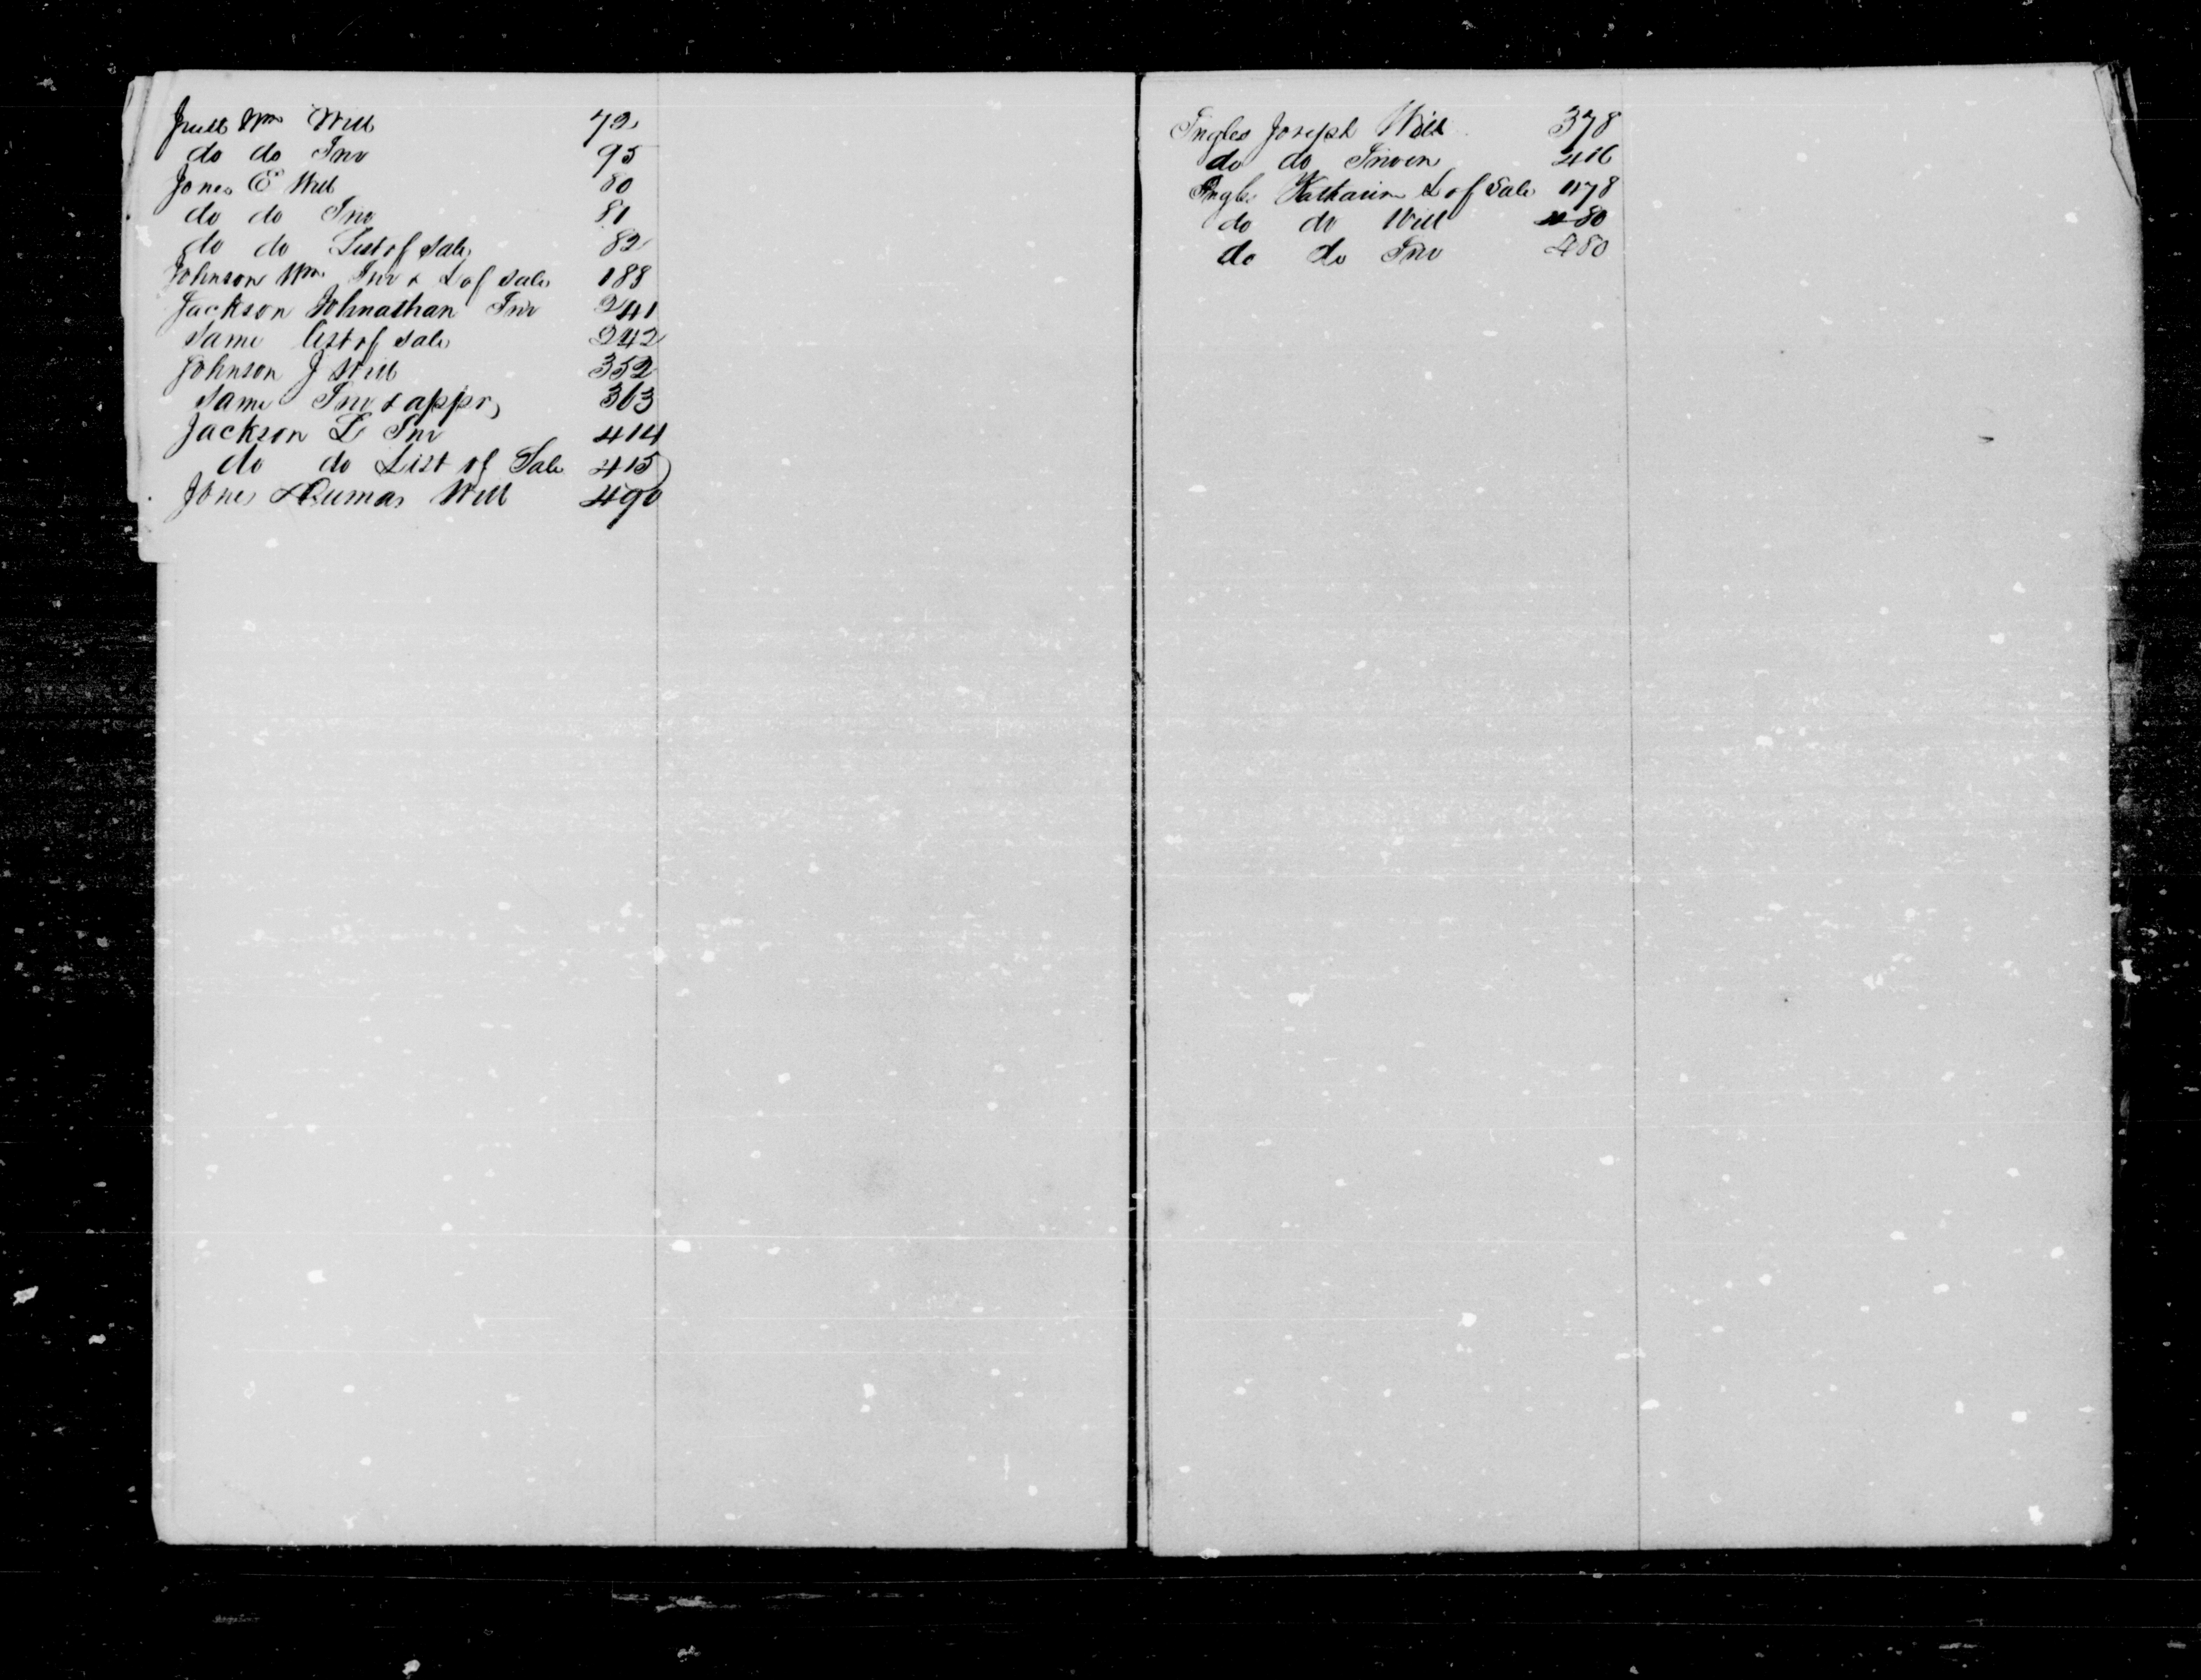 Juett Wm Will 72
do do Inv 95
Jones E Will 80
do do Inv 81
do do List of Sale 82
Johnson Wm Inv & L of Sale 188
Jackson Johnathan Inv 241
Same list of Sale 242
Johnson J Will 352
Same Inv & appr 363
Jackson L Inv 414
do do List of Sale 415
Jones Will 490
Ingles Joseph Will 378
do do Inven 416
Ingles Katharine L of Sale 478
do do Will 480
do do Inv 480